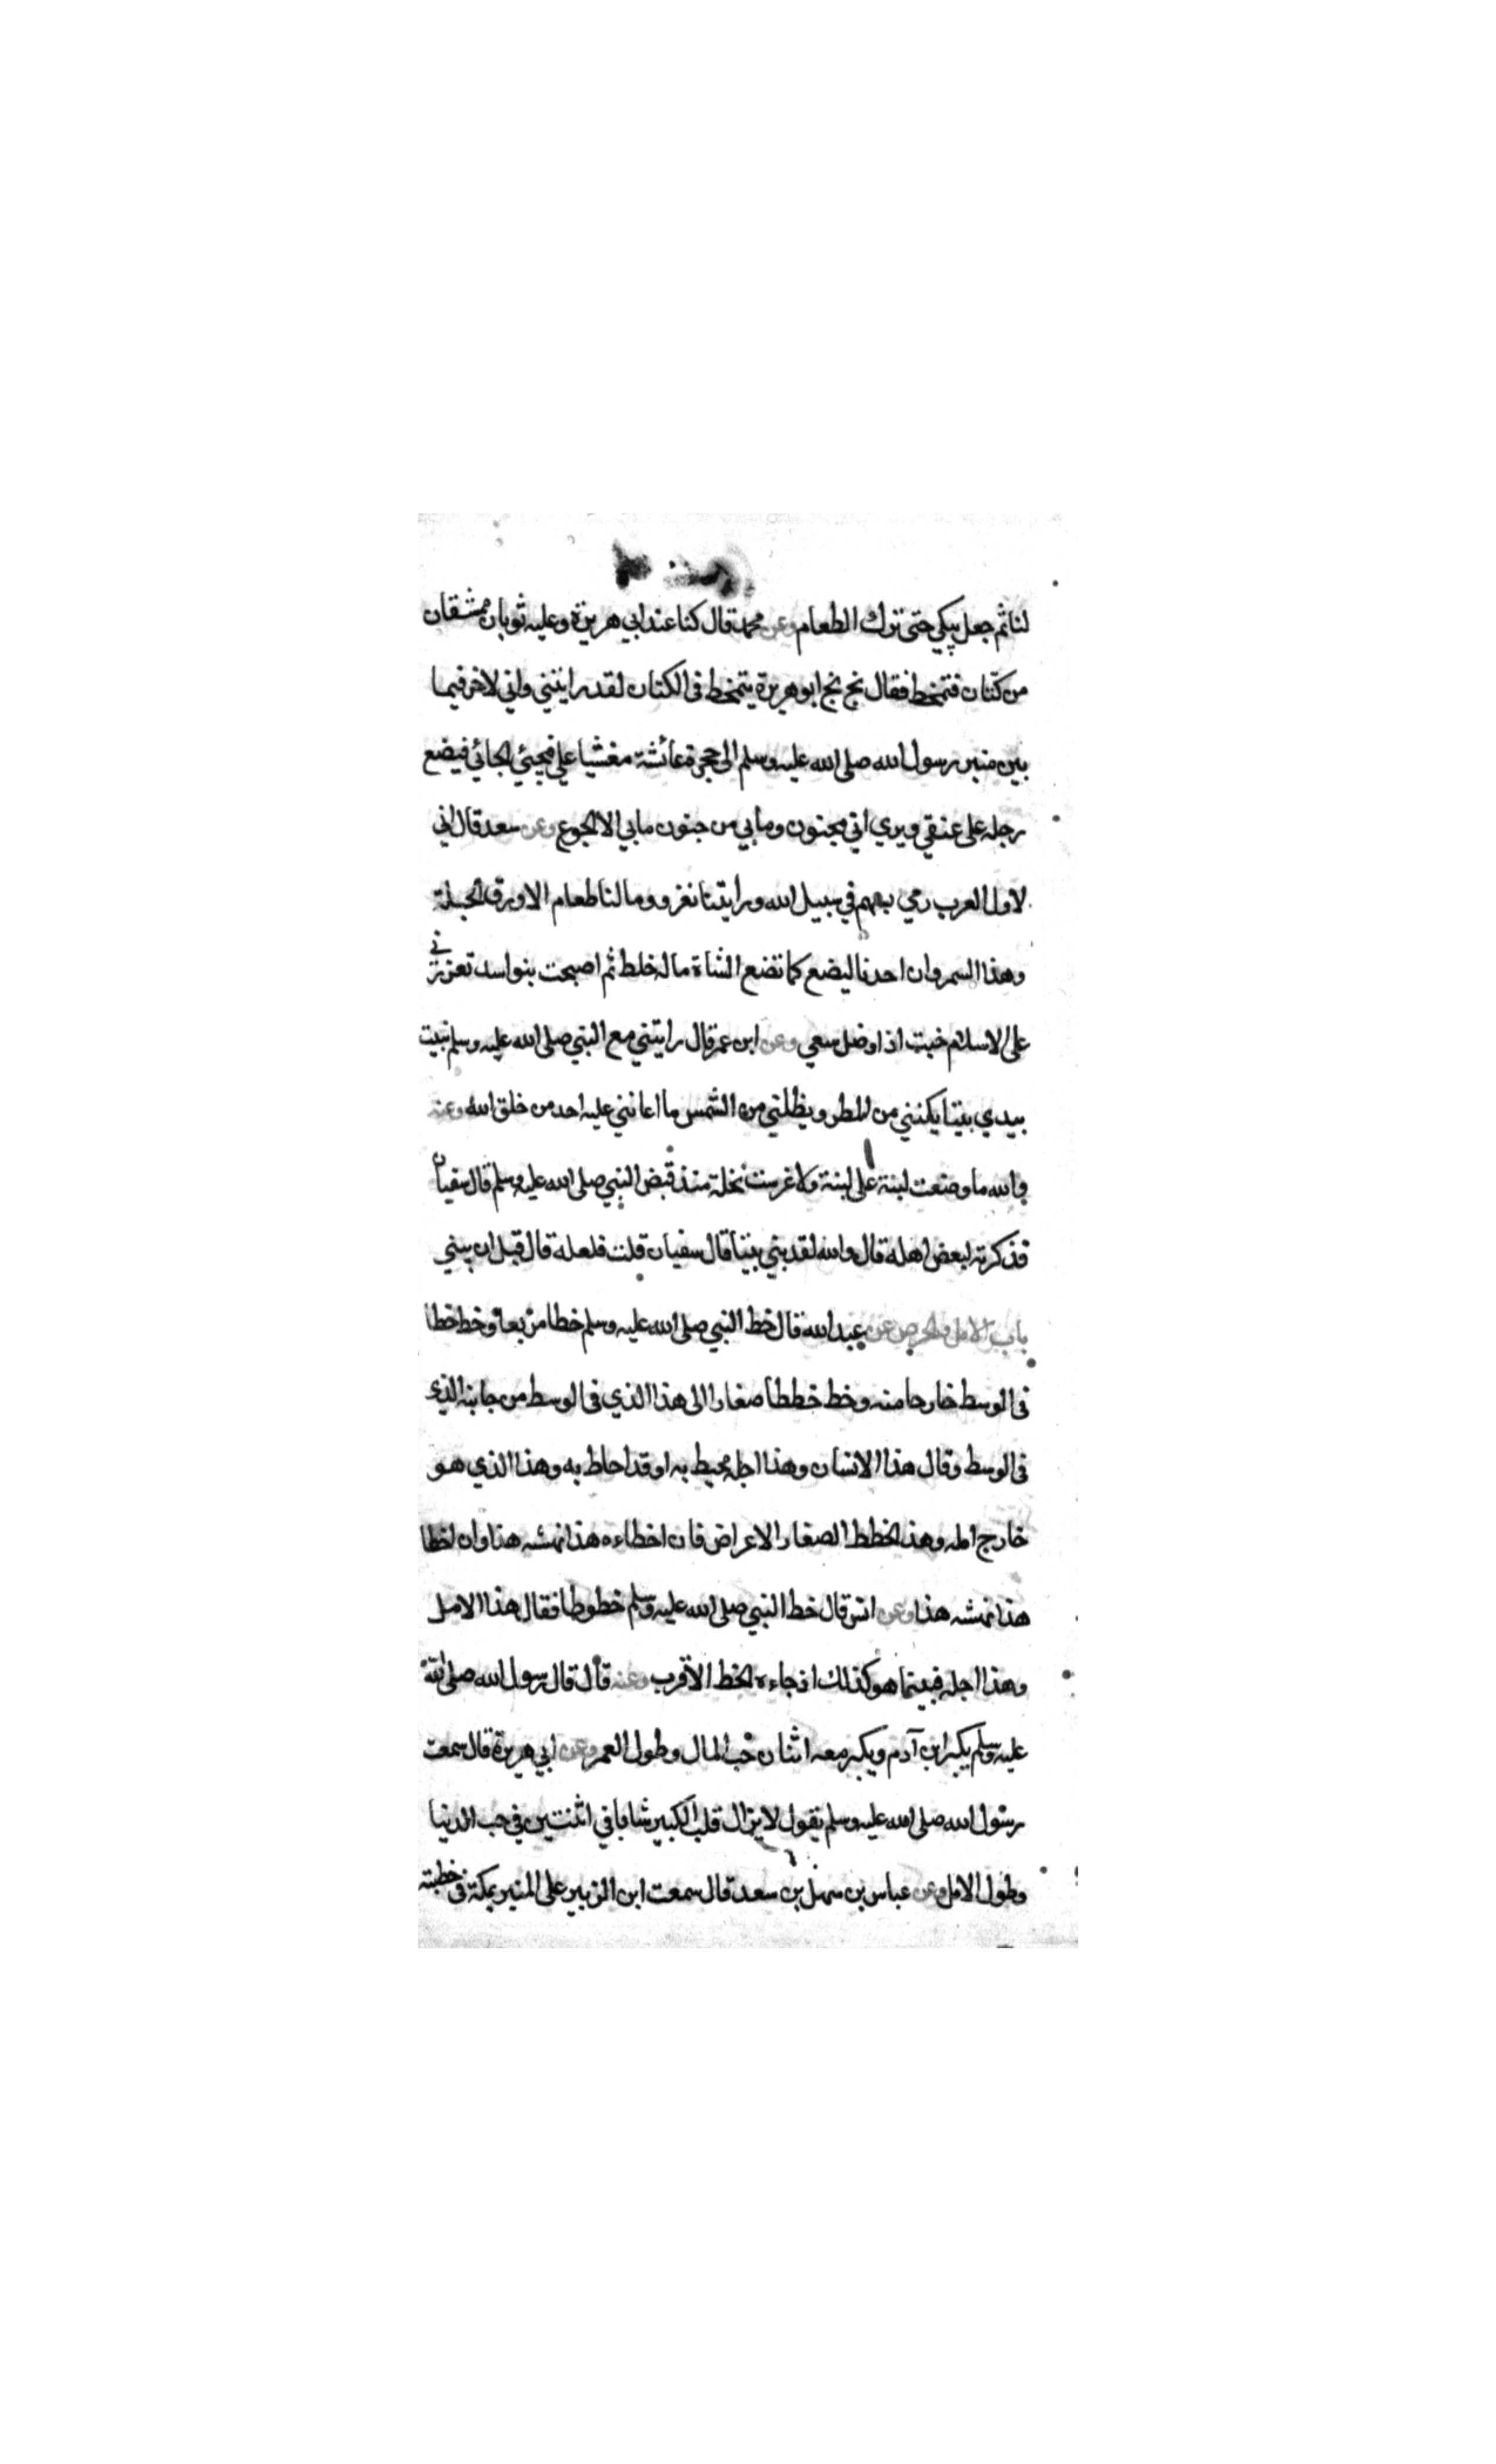 لنا ثم جعل يبكي حتى ترك الطعام وعن محمد قال كنا عند ابي هريرة وعليه ثوبان ممشقان
من كتان فتمخط فقال بخ بخ ابو هريرة يتمخط في الكتان لقد رايتني واني لاخر فيما
بين منبر رسول الله صلى الله عليه وسلم الى حجرة عائشة مغشيا علي فيجيئ الجائي فيضع
رجله على عنقي ويري اني مجنون وما بي من جنون ما بي الا الجوع وعن سعد قال اني
لاول العرب رمى بسهم في سبيل الله ورأيتنا نغزو وما لنا طعام الا ورق الحبلة
وهذا السمر وان احدنا ليضع كما تضع الشاة ماله خلط ثم اصبحت بنو اسد تعزرني
على الاسلام خبت اذا وضل سعي وعن ابن عمر قال رايتني مع النبي صلى الله عليه وسلم بنيت
بيدي بيتا يكنني من المطر ويظلني من الشمس ما اعانني عليه احد من خلق الله وعنه
والله ما وضعت لبنة على لبنة ولا غرست نخلة منذ قبض النبي صلى الله عليه وسلم قال سفيان
فذكرته لبعض اهله قال والله لقد بني بيتا قال سفيان قلت فلعله قال قبل ان يبني
باب الامل والحرص عن عبد الله قال خط النبي صلى الله عليه وسلم خطا مربعا وخط خطا
في الوسط خارجا منه وخط خططا صغارا الى هذا الذي في الوسط من جانبه الذي
في الوسط وقال هذا الانسان وهذا اجله محيط به او قد احاط به وهذا الذي هو
خارج امله وهذه الخطط الصغار الاعراض فان اخطاءه هذا نهشه هذا وان اخطا
هذا نهشه هذا وعن انس قال خط النبي صلى الله عليه وسلم خطوطا فقال هذا الامل
وهذا اجله فبينما هو كذلك اذ جاءه الخط الاقرب وعنه قال قال رسول الله صلى الله
عليه وسلم يكبر ابن آدم ويكبر معه اثنان حب المال وطول العمر وعن ابي هريرة قال سمعت
رسول الله صلى الله عليه وسلم يقول لا يزال قلب الكبير شابا في اثنتين في حب الدنيا
وطول الامل وعن عباس بن سهل بن سعد قال سمعت ابن الزبير على المنبر بمكة في خطبته